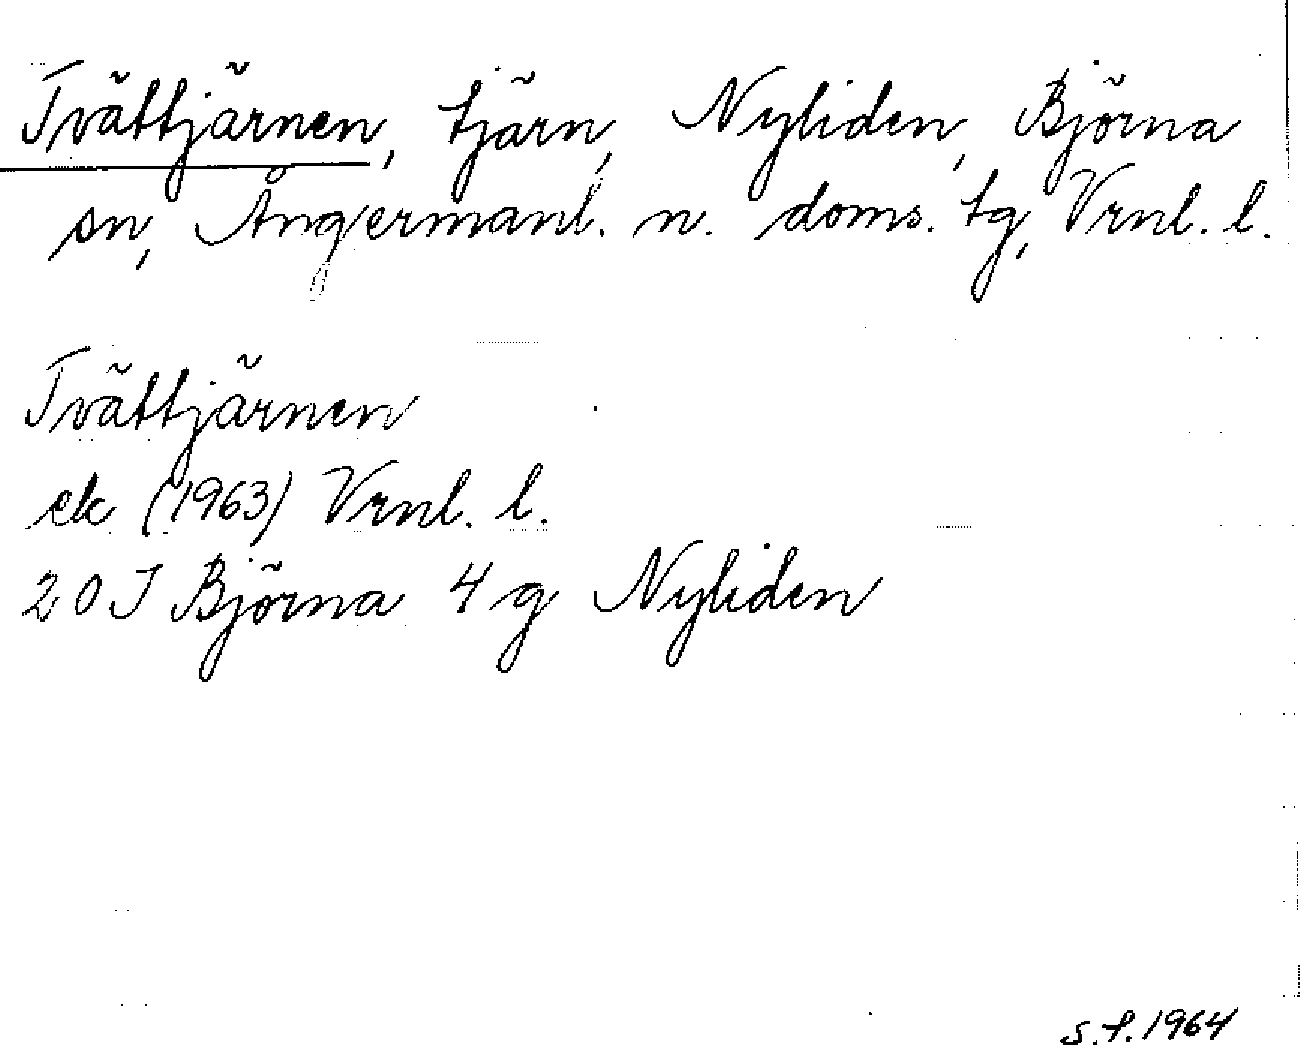 Tvättjärnen, tjärn, Nyliden, Björna
sn, Ångermanl. n. doms. tg, Vrnl. l.
Tvättjärnen
ek (1963) Vrnl. l.
20 J Björna 4 g Nyliden
S.f. 1964